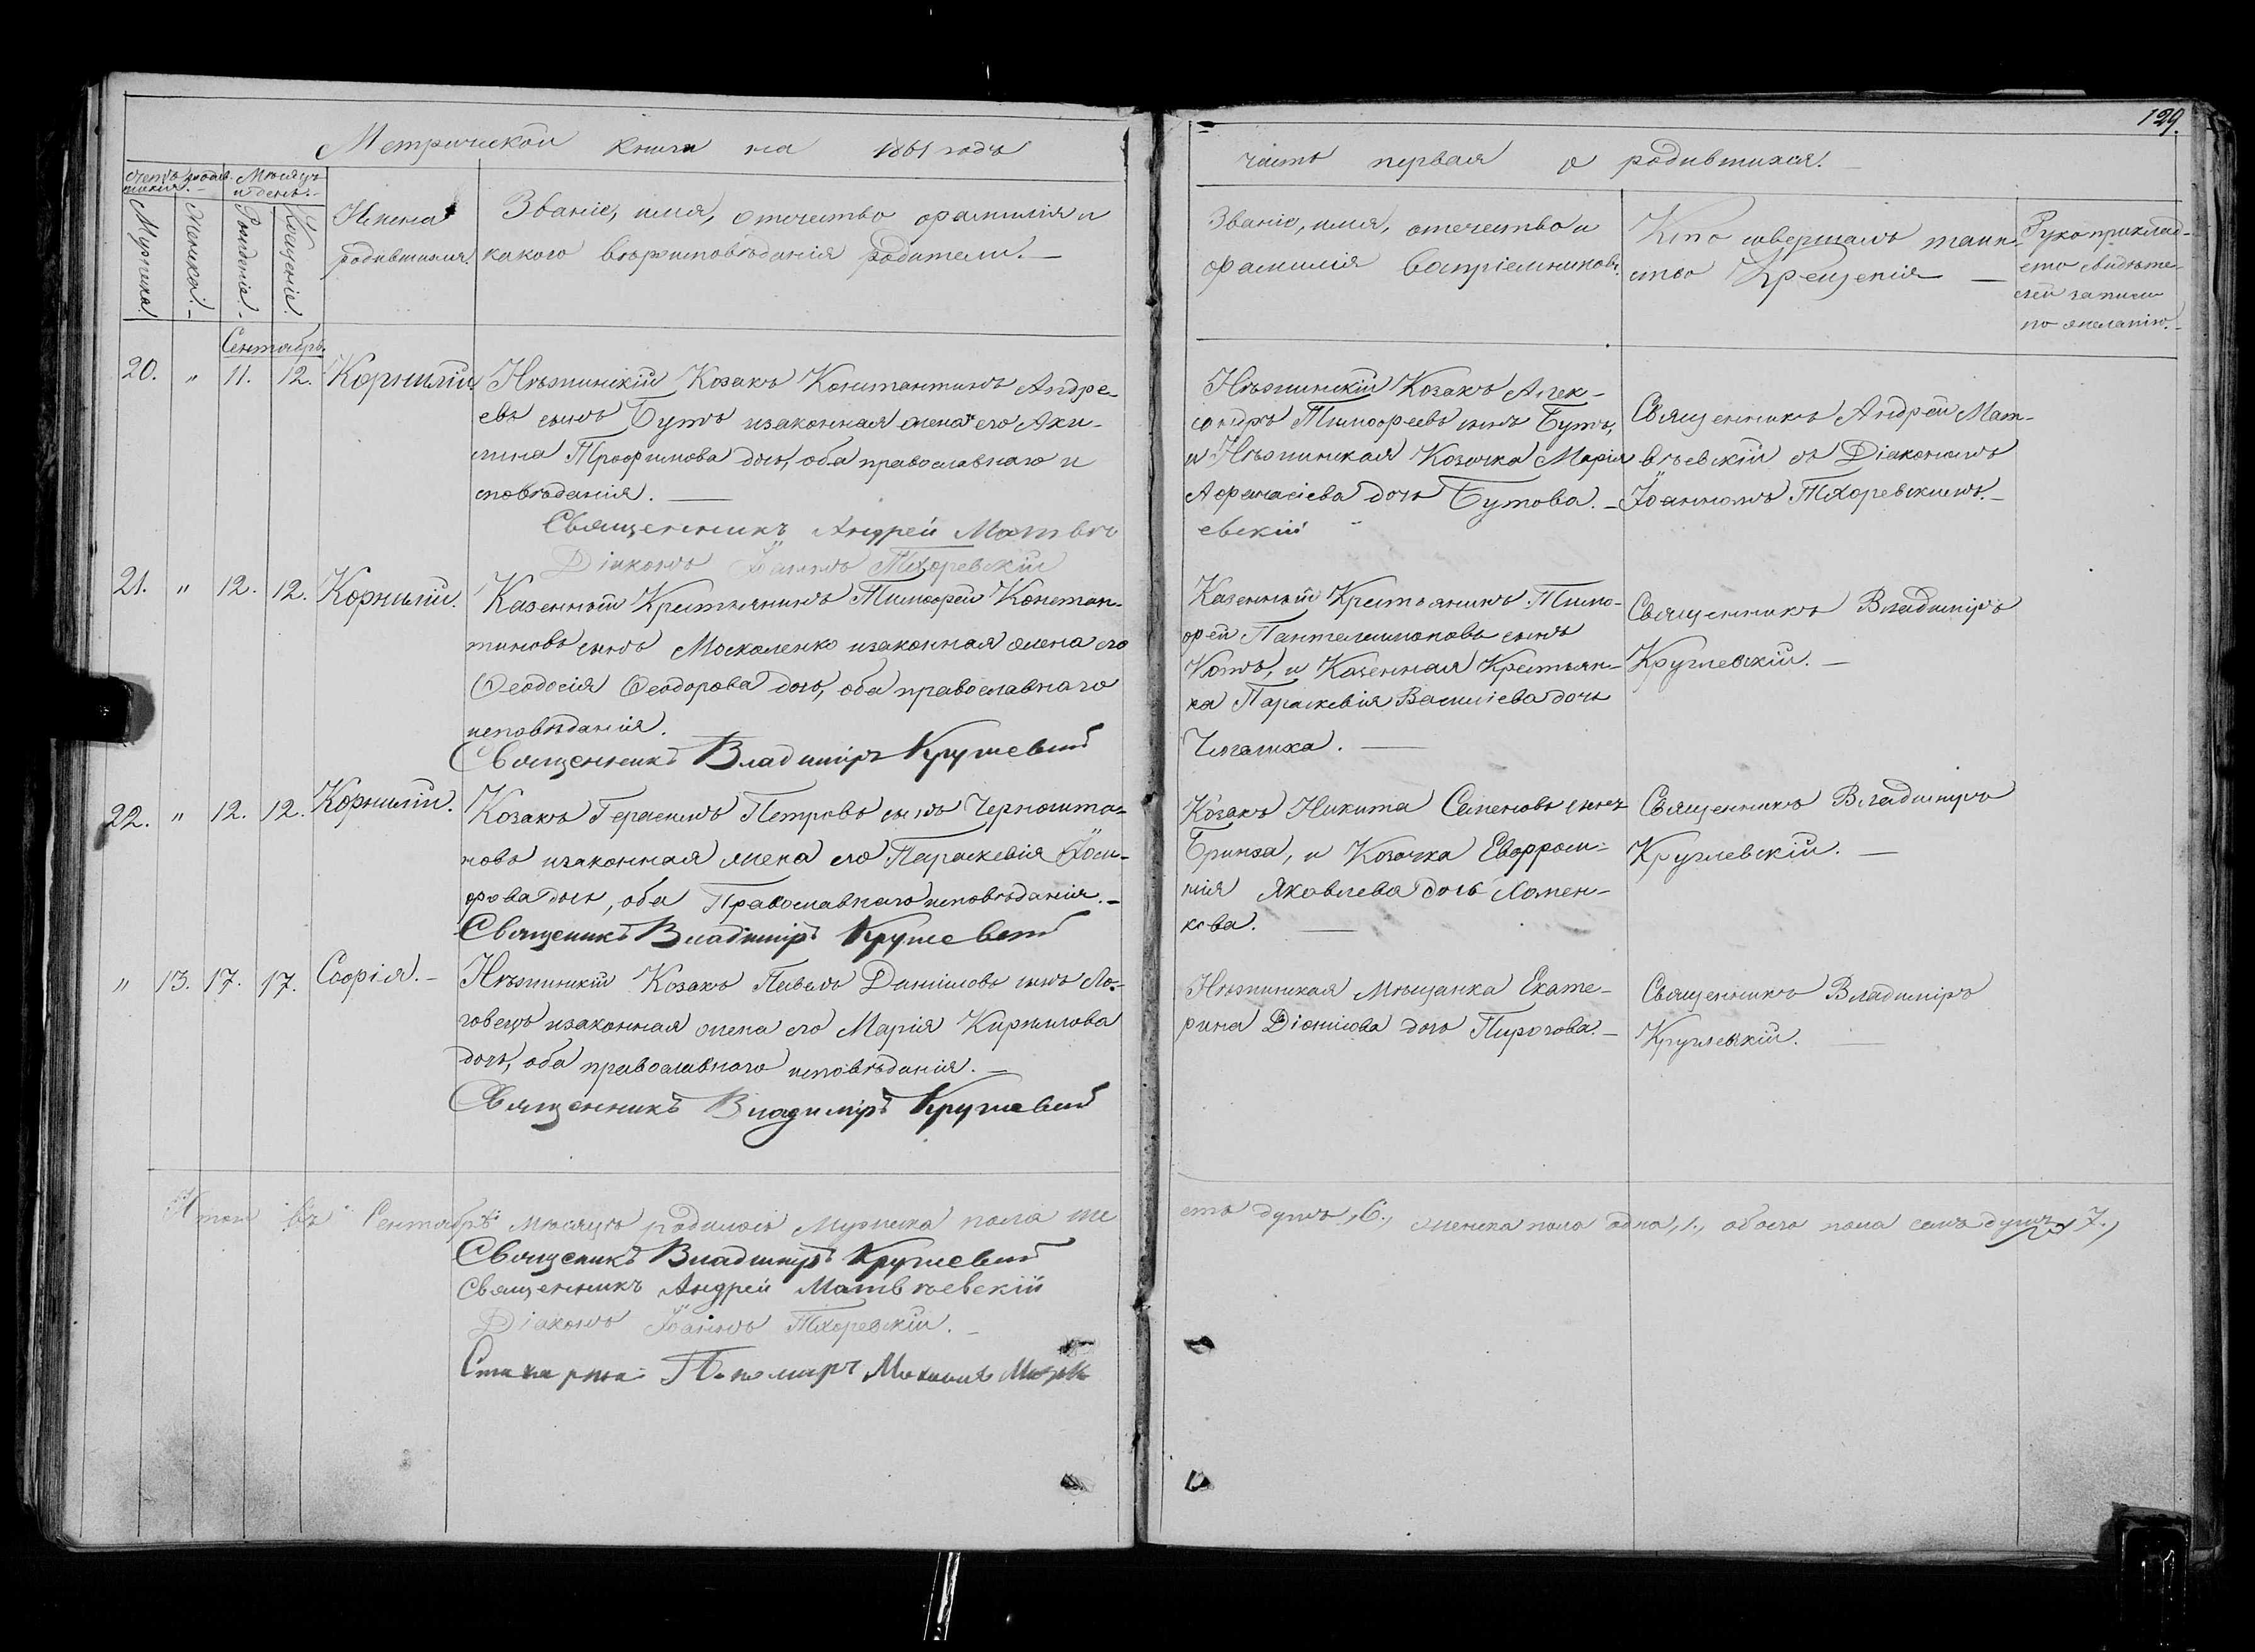 129.
Метрической книги на 1861 годъ
часть первая о родившихся.
Счетъ родив-
шихся.
Мѣсяцъ
и день.
Мужеска.
Женска.
Рожденіе.
Крещеніе.
Имена
родившихся.
Званіе, имя, отечество фамилія и
какого вѣроисповѣданія родители.
Званіе, имя, отечество и
фамилія воспріемниковъ.
Кто совершалъ таин-
ство Крещенія
Рукоприклад-
ство свидѣте-
лей записи
по желанію.
Сентябрь.
20. " 11. 12. Корнилій.
Нѣжинскій Козакъ Константинъ Андре-
евъ сынъ Бутъ изаконная жена его Аки-
лина Трофимова дочь, оба православнаго и
сповѣданія.
Священникъ Андрей Матвѣ
Діаконъ Іоаннъ Тхоревскій
Нѣжинскій Козакъ Алек-
сандръ Тимофеевъ сынъ Бутъ,
и Нѣжинская Козачка Марія
Афанасіева дочь Бутова.
евскій
Священникъ Андрей Мат-
вѣевскій съ Діакономъ
Іоанномъ Тхоревскимъ.
21. " 12. 12. Корнилій.
Казенный Крестьянинъ Тимофей Констан-
тиновъ сынъ Москаленко изаконная жена его
Ѳеодосія Ѳеодорова дочь, оба православнаго
исповѣданія.
Священникъ Владиміръ Круглевскій
Казенный Крестьянинъ Тимо-
фей Пантелимоновъ сынъ
Котъ, и Казенная Крестьян-
ка Параскевія Василіева дочь
Священникъ Владиміръ
Круглевскій.
22. " 12. 12. Корнилій.
Козакъ Герасимъ Петровъ сынъ Черношта-
новъ изаконная жена его Параскевія Іоси-
фова дочь, оба Православнаго исповѣданія.
Священикъ Владиміръ Круглевскій
Козакъ Никита Семеновъ сынъ
Бринза, и Козачка Евфроси-
нія Яковлева дочь Хомен-
кова.
Священникъ Владиміръ
Круглевскій.
" 13. 17. 17. Софія.
Нѣжинскій Козакъ Павелъ Даніиловъ сынъ Ло-
говецъ изаконная жена его Марія Кирилова
дочь, оба православнаго исповѣданія.
Священникъ Владиміръ Круглевскій
Нѣжинская Мѣщанка Екате-
рина Діонисова дочь Пирогова.
Священникъ Владиміръ
Круглевскій.
Итого въ Сентябрѣ мѣсяцѣ родилось Мужеска пола ше
сть душъ, 6., женска пола одна, 1., обоего пола семь душъ, 7.,
Священикъ Владиміръ Круглевскій
Священникъ Андрей Матвѣевскій
Діаконъ Іоаннъ Тхоревскій.
Пономаръ